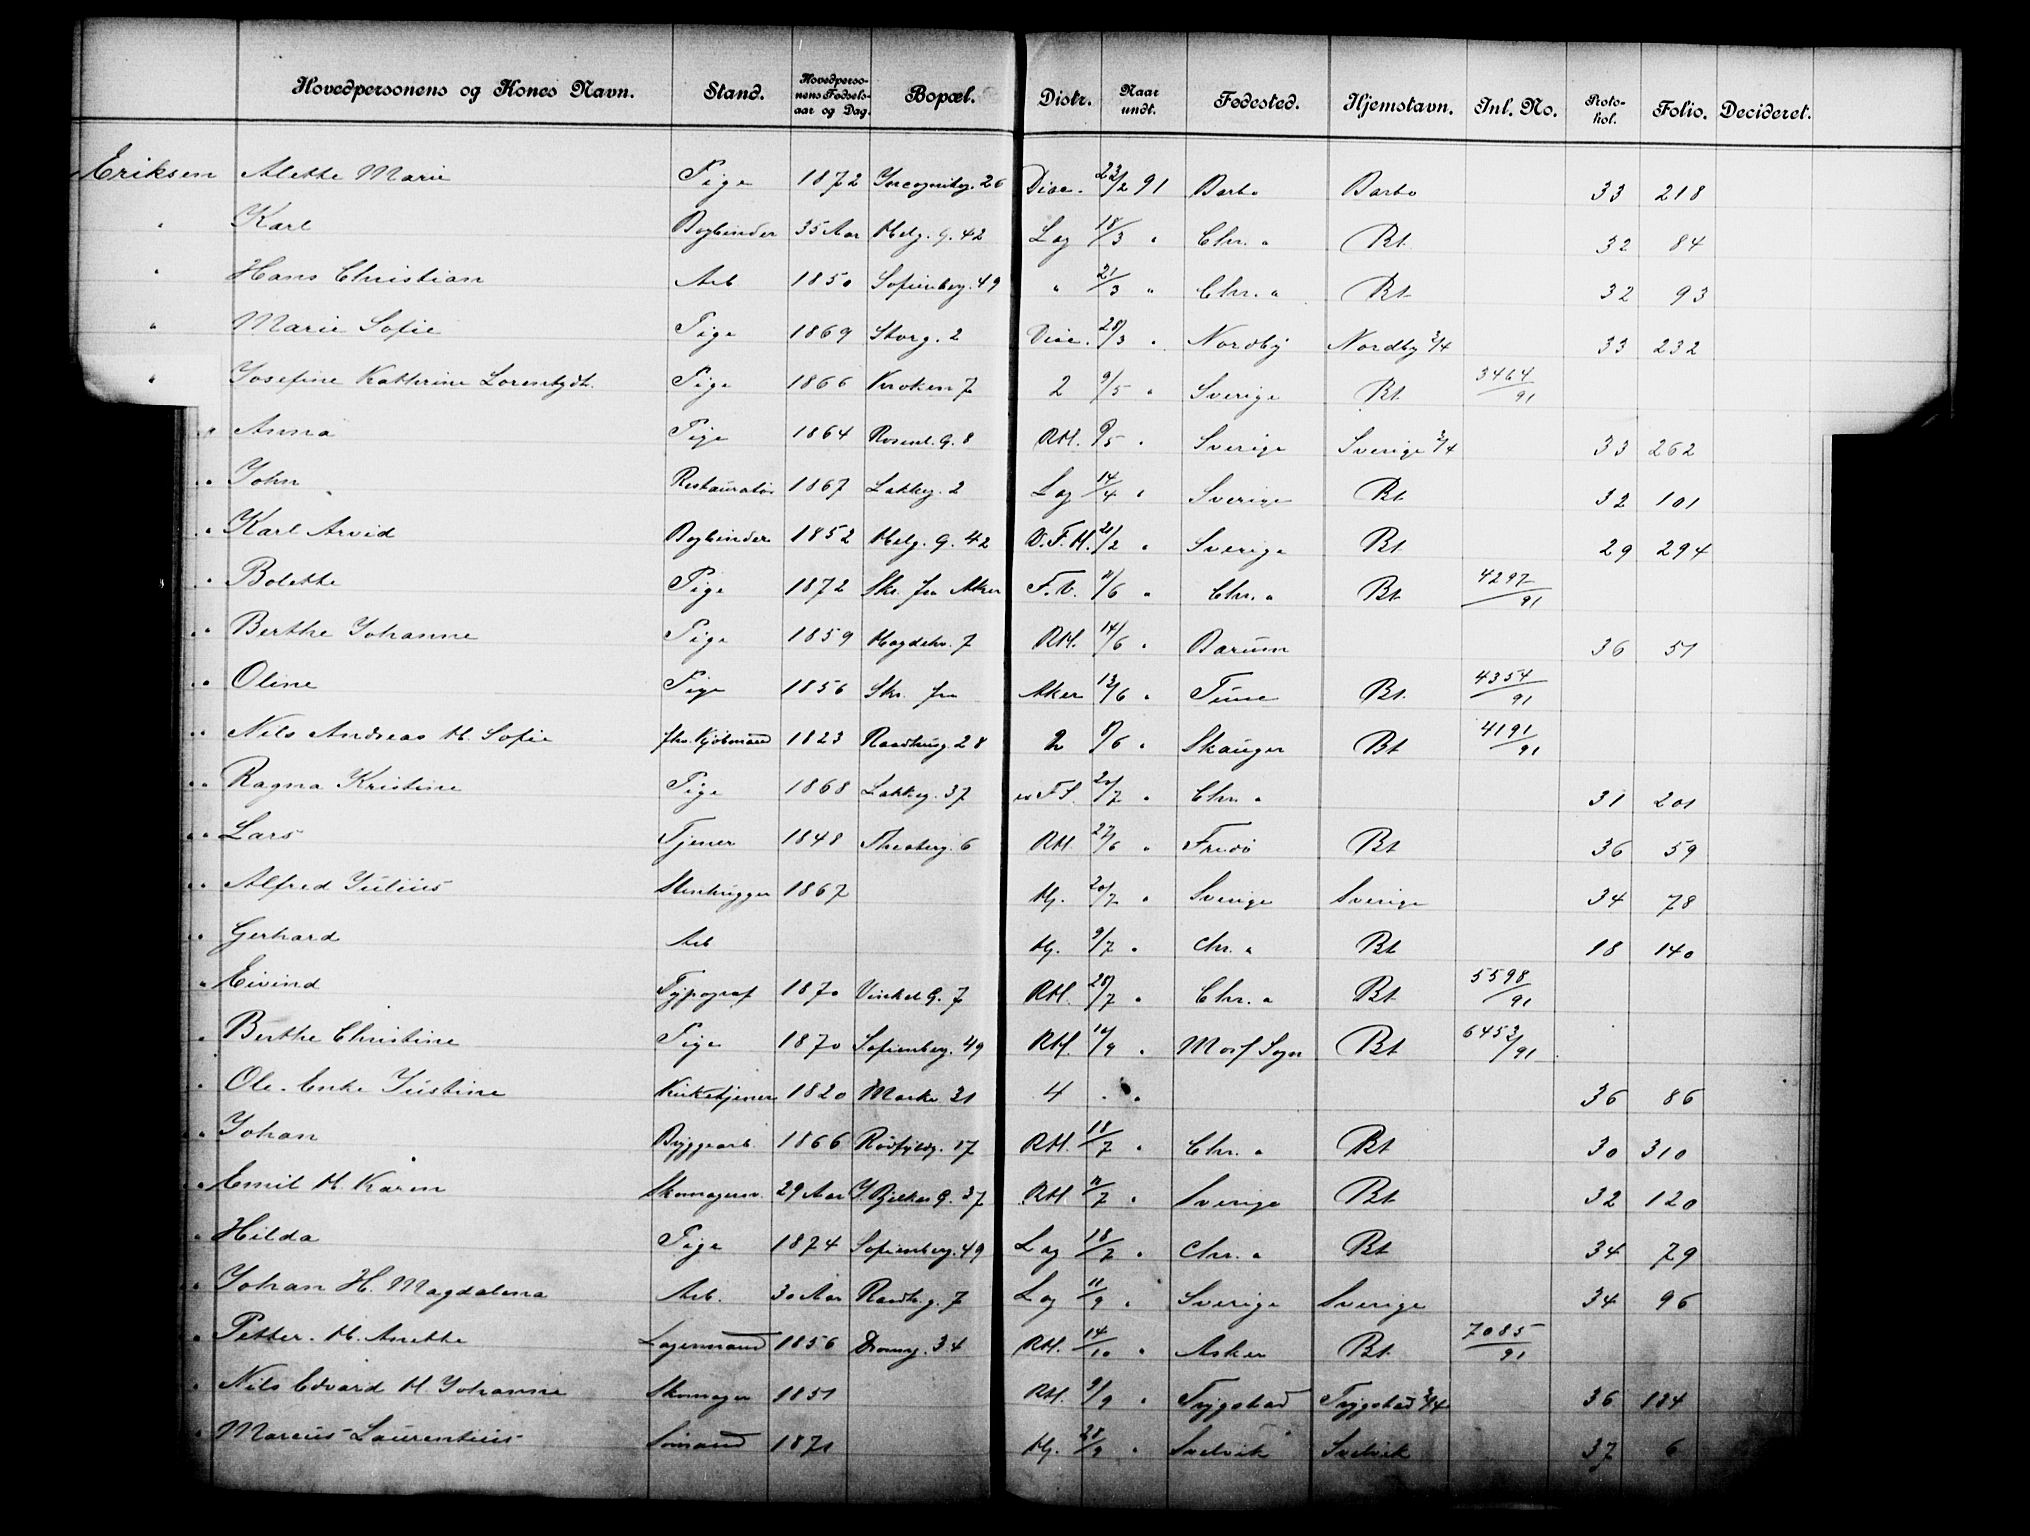 Hovedpersonens og Kones Navn. Stand. Hovedpersonens Fødselsaar og Dag. Bopæl. Distr. Naar undt. Fødested. Hjemstavn. Inl. No. Protokol. Folio. Decideret.
Eriksen Alette Marie Pige 1872 26 Diac. 23/2 91 Barbo Barbo 33 218
" Karl Bogbinder 35 Aar Helg. G. 42 Lag 18/3 " Chr. a Bt 32 84
" Hans Christian Arb 1850 Sofienbg. 49 " 21/3 " Chr. a Bt 32 93
" Marie Sofie Pige 1869 Storg. 2 Diac. 28/3 " Nordby Nordby 3/4 33 232
" Josefine Kathrine Pige 1866 Kroken 7 2 9/5 " Sverige Bt 3464/91
" Anna Pige 1864 Rosenk. G. 8 RH. 9/5 " Sverige Sverige 3/4 33 262
" John Restauratør 1867 Lakkeg. 2 Lag 14/4 " Sverige Bt 32 101
" Karl Arvid Bogbinder 1852 Helg. G. 42 V.F.H. 2/2 " Sverige Bt 29 294
" Bolette Pige 1872 Skr. fra Aker F.V. 11/6 " Chr. a Bt 4297/91
" Berthe Johanne Pige 1859 7 RH. 14/6 " Barum 36 51
" Oline Pige 1856 Skr. fra Aker 13/6 " Tune Bt 4354/91
" Nils Andreas H. Sofie fhv. Kjøbmand 1823 Raadhusg. 28 2 9/6 " Skauger Bt 4191/91
" Ragna Kristine Pige 1868 Lakkeg. 37 20/7 " Chr. a 31 201
" Lars Tjener 1848 Theaterg. 6 RH. 27/6 " Bt 36 59
" Alfred Julius Stenhugger 1867 Hj. 20/7 " Sverige Sverige 34 78
" Gerhard Arb Hj. 9/7 " Chr. a Bt 18 140
" Eivind Typograf 1870 Vinkel G. 7 RH. 28/7 " Chr. a Bt 5598/91
" Berthe Christine Pige 1870 Sofienberg. 49 RH. 10/9 " Bt 6453/91
" Ole. Enke Justine Kirketjener 1820 Markv. 31 4 " 36 86
" Johan Bryggearb. 1866 Rødfyldg. 17 RH. 18/7 " Chr. a Bt 30 310
" Emil H. Karen Skomagersv. 29 Aar J. Bjelkes G. 37 RH. 11/7 " Sverige Bt 32 120
" Hilda Pige 1874 Sofienberg. 49 Lag 18/7 " Chr. a Bt 34 79
" Johan H. Magdalena Arb. 30 Aar Raadh.g. 7 Lag 11/9 " Sverige Sverige 34 96
" Petter. H. Anette Lagermand 1856 34 RH. 14/10 " Asker Bt 7085/91
" Nils Edvard H. Johanne Skomager 1851 RH. 9/9 " Trygstad Trygstad 3/4 36 134
" Marcus Laurentius Sømand 1871 Hj. 28/9 " Svelvik Svelvik 37 6